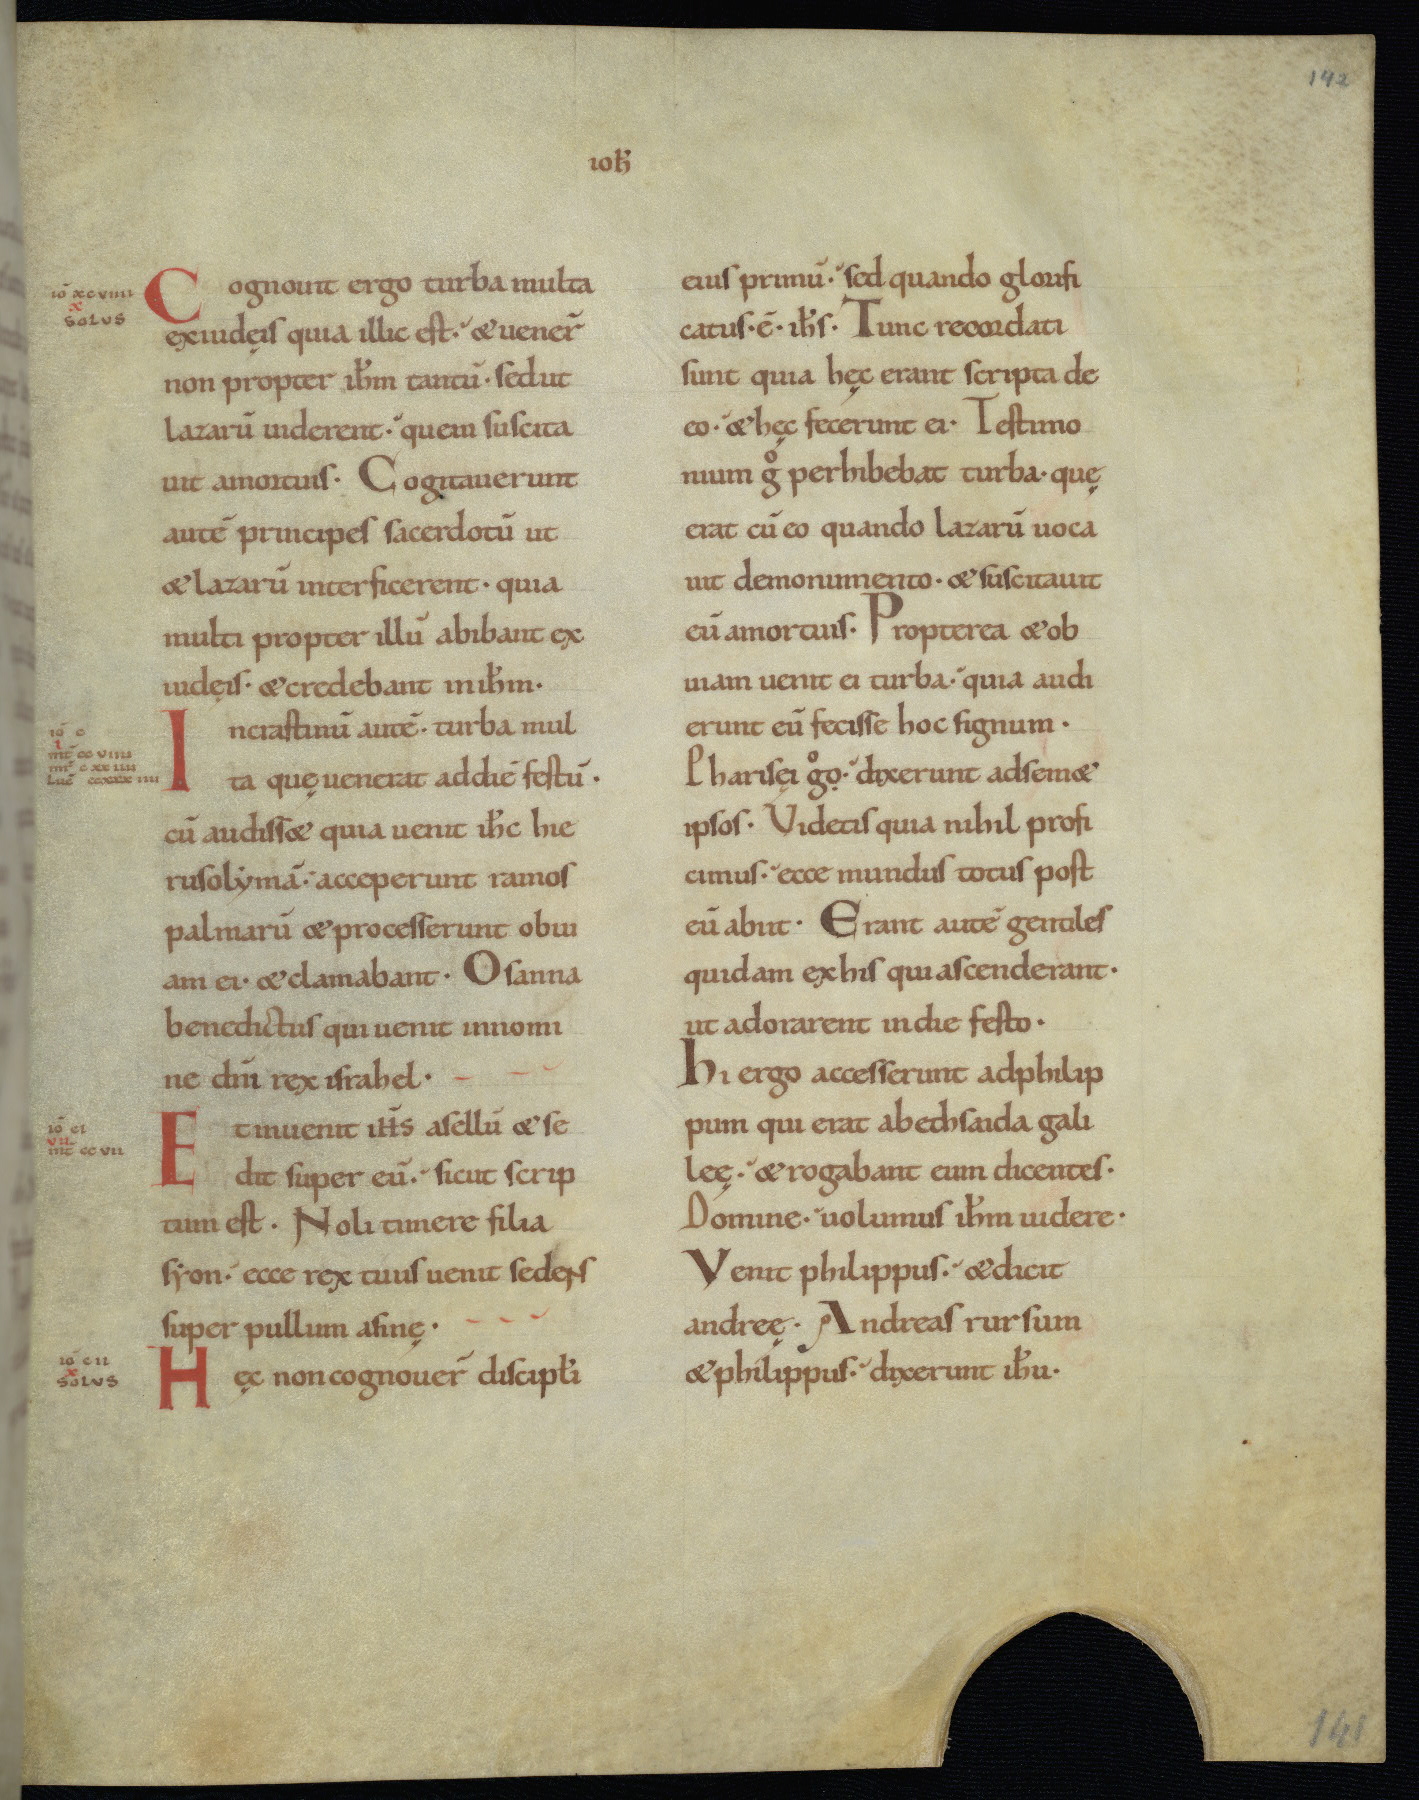 142
ioħ
iō xcviiii
x
SOLUS
Cognouit ergo turba multa
exiudęis quia illic est. & ueneř
non propter ihm̄ tantū. sedut
lazarū uiderent. quem suscita
uit amortuis. Cogitauerunt
autē principes sacerdotū ut
& lazarū interficerent. quia
multi propter illū abibant ex
iudęis. & credebant inihm̄.
iō c
i
mt̄ ccviiii
luc̄ ccxxxiiii
Incrastinū autē. turba mul
ta quę uenerat addiē festū.
cū audiss& quia uenit ihc̄ hie
rusolẏmā. acceperunt ramos
palmarū & processerunt obui
am ei. & clamabant. Osanna
benedictus qui uenit innomi
ne dn̄i rex israhel.
iō ci
vii
mt̄ ccvii
Et inuenit iħs asellū & se
dit super eū. sicut scrip
tum est. Noli timere filia
sẏon. ecce rex tuus uenit sedens
super pullum asinę.
iō cii
x
SOLUS
Hęc noncognoueř discipłi
eius primū. sed quando glorifi
catus. ē. ihs̄. Tunc recordati
sunt quia hęc erant scripta de
eo. & hęc fecerunt ei. Testimo
nium g̊ perhibebat turba. quę
erat cū eo quando lazarū uoca
uit demonumento. & suscitauit
eū amortuis. Propterea & ob
uiam uenit ei turba. quia audi
erunt eū fecisse hoc signum.
Pharisęi g̊o. dixerunt adsem&
ipsos. Videtis quia nihil profi
cimus. ecce mundus totus post
eū abiit. Erant autē gentiles
quidam exhis quiascenderant.
ut adorarent indie festo.
hi ergo accesserunt adphilip
pum qui erat abethsaida gali
leę. & rogabant eum dicentes.
Domine. uolumus ihm̄ uidere.
Venit philippus. & dicit
andreę. Andreas rursum
& philippus. dixerunt ihū.
141